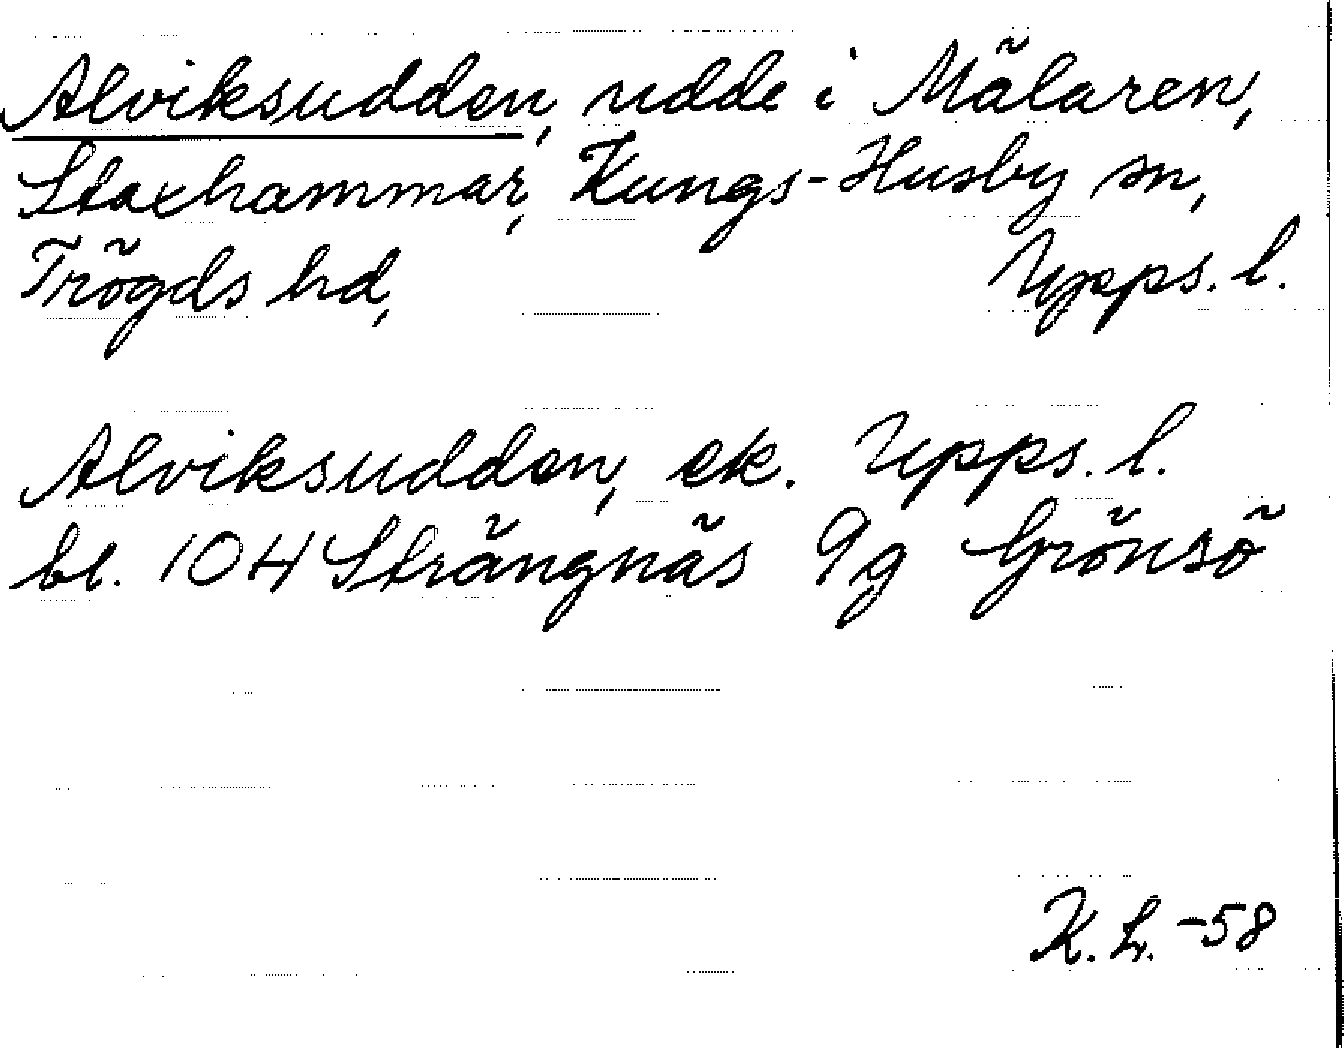 Alviksudden, udde i Mälaren,
Staxhammar, Kungs-Husby sn,
Trögds hd, Upps. l.
Alviksudden, ek. Upps. l.
bl. 104 Strängnäs 9g Grönsö
K. L. -58